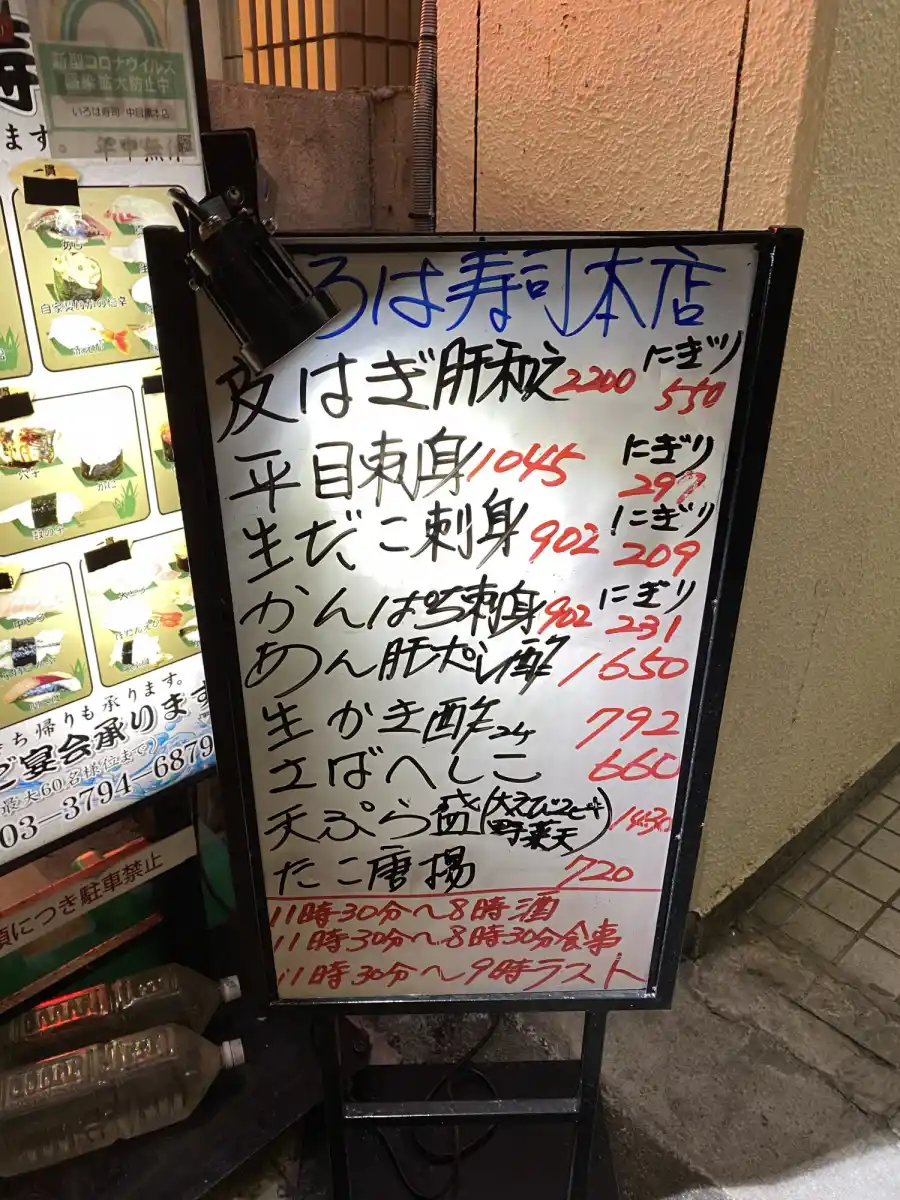 新型コロナウイルス
感染拡大防止中
いろは寿司 中目黒本店
年中無休
ます
一貫
あじ
穴子
かに
持ち帰りも承ります。
ご宴会承ります
最大60名様位まで
03-3794-6879
につき駐車禁止
ろは寿司本店
皮はぎ肝和え2200 にぎり550
平目刺身1045 にぎり297
生だこ刺身902 にぎり209
かんぱち刺身902 にぎり231
あん肝ポン酢1650
生かき酢2ケ 792
さばへしこ 660
天ぷら盛(大えび2ピキ野菜天)1430
たこ唐揚 720
11時30分〜8時酒
11時30分〜8時30分食事
11時30分〜9時ラスト